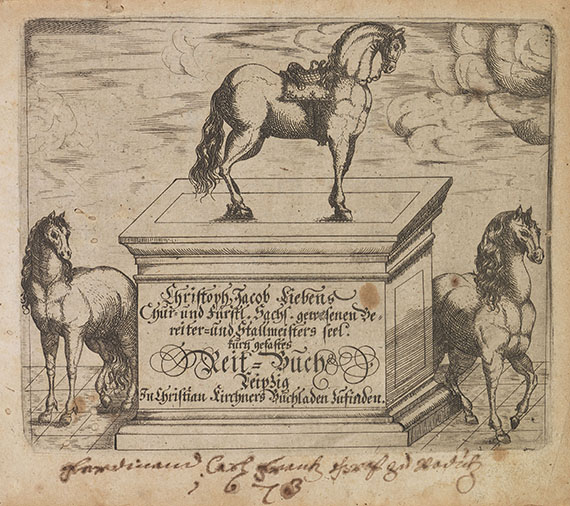 Christoph Jacob Liebens
Chur- und Fürstl. Sachs. gewesenen Be-
reiter- und Stallmeisters seel.
kurtz gefastes
Reit-Buch
Leipzig
In Christian Kirchners Buchladen zufinden.
Ferdinand Carl Frantz
1673